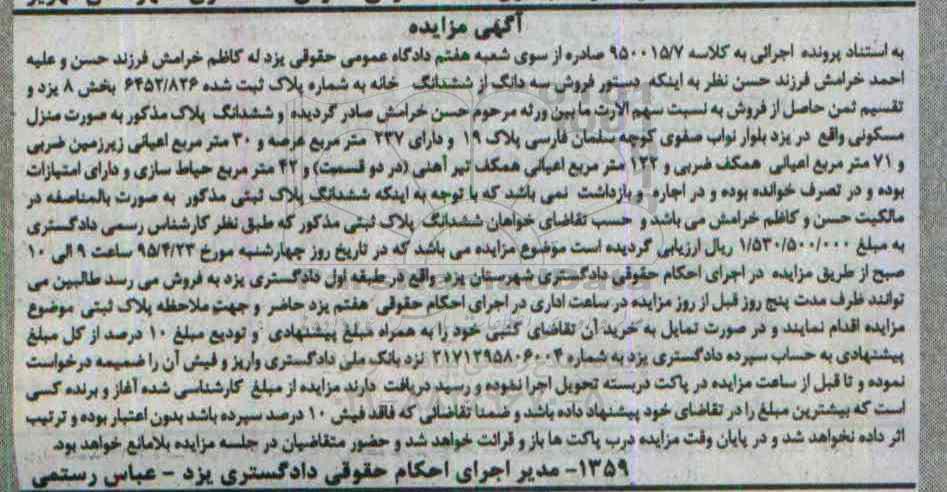 آگهی مزایده
به استناد پرونده اجرائی به کلاسه ۹۵۰۰۱۵/۷ صادره از سوی شعبه هفتم دادگاه عمومی حقوقی یزد له کاظم خرامش فرزند حسن و علیه
احمد خرامش فرزند حسن نظر به اینکه دستور فروش سه دانگ از ششدانگ خانه به شماره پلاک ثبت شده ۶۴۵۲/۸۲۶ بخش ۸ یزد و
تقسیم ثمن حاصل از فروش به نسبت سهم الارث ما بین ورثه مرحوم حسن خرامش صادر گردیده و ششدانگ پلاک مذکور به صورت منزل
مسکونی واقع در یزد بلوار نواب صفوی کوچه سلمان فارسی پلاک ۱۹ و دارای ۲۳۷ متر مربع عرصه و ۳۰ متر مربع اعیانی زیرزمین ضربی
و ۷۱ متر مربع اعیانی همکف ضربی و ۱۲۲ متر مربع اعیانی همکف تیر آهنی (در دو قسمت) و ۴۲ متر مربع حیاط سازی و دارای امتیازات
بوده و در تصرف خوانده بوده و در اجاره و بازداشت نمی باشد که با توجه به اینکه ششدانگ پلاک ثبتی مذکور به صورت بالمناصفه در
مالکیت حسن و کاظم خرامش می باشد و حسب تقاضای خواهان ششدانگ پلاک ثبتی مذکور که طبق نظر کارشناس رسمی دادگستری
به مبلغ ۱/۵۳۰/۵۰۰/۰۰۰ ریال ارزیابی گردیده است موضوع مزایده می باشد که در تاریخ روز چهارشنبه مورخ ۹۵/۴/۲۳ ساعت ۹ الی ۱۰
صبح از طریق مزایده در اجرای احکام حقوقی دادگستری شهرستان یزد واقع در طبقه اول دادگستری یزد به فروش می رسد طالبین می
توانند ظرف مدت پنج روز قبل از روز مزایده در ساعت اداری در اجرای احکام حقوقی هفتم یزد حاضر و جهت ملاحظه پلاک ثبتی موضوع
مزایده اقدام نمایند و در صورت تمایل به خرید آن تقاضای کتبی خود را به همراه مبلغ پیشنهادی و تودیع مبلغ ۱۰ درصد از کل مبلغ
پیشنهادی به حساب سپرده دادگستری یزد به شماره ۲۱۷۱۲۹۵۸۰۶۰۰۴ نزد بانک ملی دادگستری واریز و فیش آن را ضمیمه درخواست
نموده و تا قبل از ساعت مزایده در پاکت دربسته تحویل اجرا نموده و رسید دریافت دارند مزایده از مبلغ کارشناسی شده آغاز و برنده کسی
است که بیشترین مبلغ را در تقاضای خود پیشنهاد داده باشد و ضمنا تقاضائی که فاقد فیش ۱۰ درصد سپرده باشد بدون اعتبار بوده و ترتیب
اثر داده نخواهد شد و در پایان وقت مزایده درب پاکت ها باز و قرائت خواهد شد و حضور متقاضیان در جلسه مزایده بلامانع خواهد بود.
۱۳۵۹- مدیر اجرای احکام حقوقی دادگستری یزد - عباس رستمی